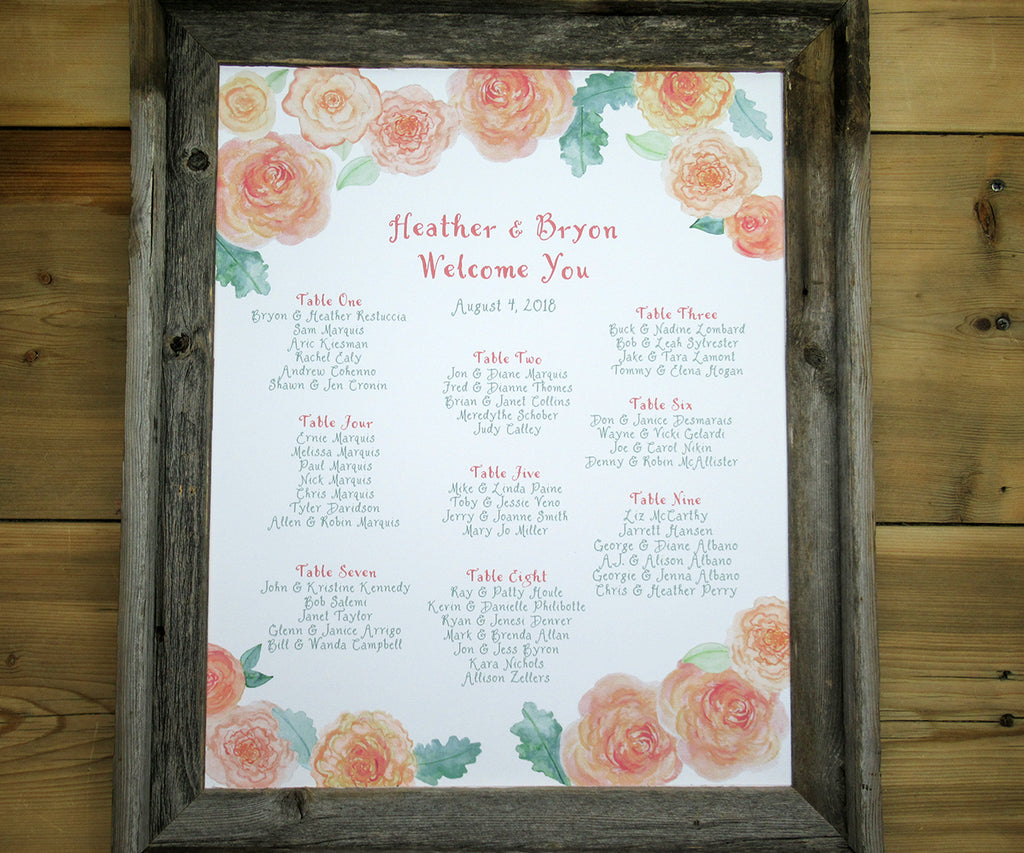 Heather & Bryon
Welcome You
August 4, 2018
Table One
Bryon & Heather Restuccia
Sam Marquis
Aric Kiesman
Rachel Ealy
Andrew Cohenno
Shawn & Jen Cronin
Table Two
Jon & Diane Marquis
Fred & Dianne Thomes
Brian & Janet Collins
Meredythe Schober
Judy Calley
Table Three
Buck & Nadine Lombard
Bob & Leah Sylvester
Jake & Tara Lamont
Tommy & Elena Hogan
Table Four
Ernie Marquis
Melissa Marquis
Paul Marquis
Nick Marquis
Chris Marquis
Tyler Davidson
Allen & Robin Marquis
Table Five
Mike & Linda Paine
Toby & Jessie Veno
Jerry & Joanne Smith
Mary Jo Miller
Table Six
Don & Janice Desmarais
Wayne & Vicki Gelardi
Joe & Carol Nikin
Denny & Robin McAllister
Table Seven
John & Kristine Kennedy
Bob Salemi
Janet Taylor
Glenn & Janice Arrigo
Bill & Wanda Campbell
Table Eight
Ray & Patty Houle
Kerin & Danielle Philibotte
Ryan & Jenesi Denrer
Mark & Brenda Allan
Jon & Jess Byron
Kara Nichols
Allison Zellers
Table Nine
Liz McCarthy
Jarrett Hansen
George & Diane Albano
A.J. & Alison Albano
Georgie & Jenna Albano
Chris & Heather Perry